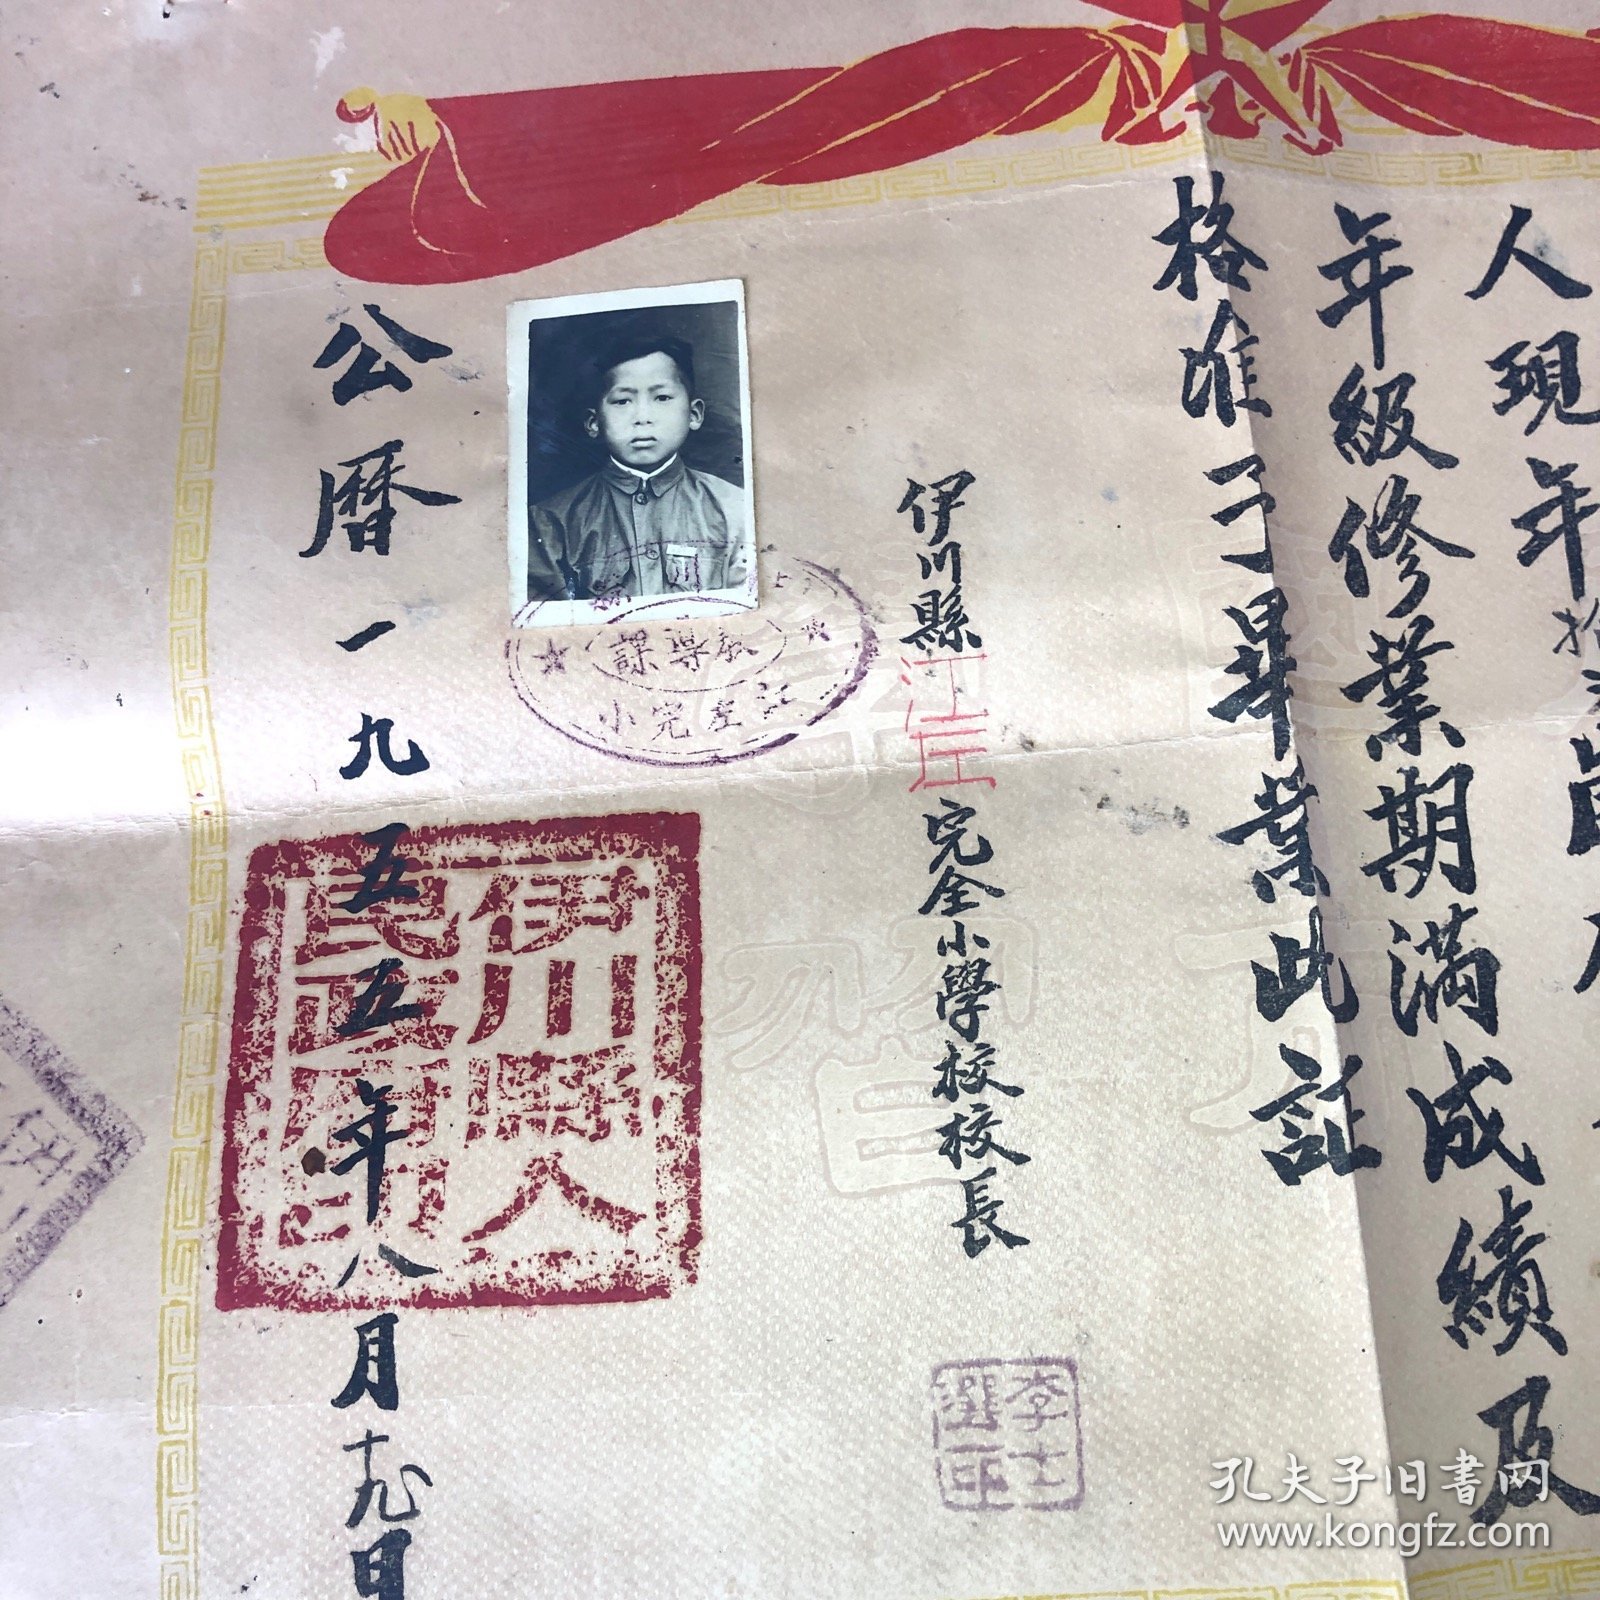 人現年拾
年級修業期滿成績及
格准予畢業此証
伊川縣江左完全小學校校長
李士選印
川縣
教導課
江左完小
公曆一九五五年八月十九日
伊川縣人民政府印
孔夫子旧书网
www.kongfz.com